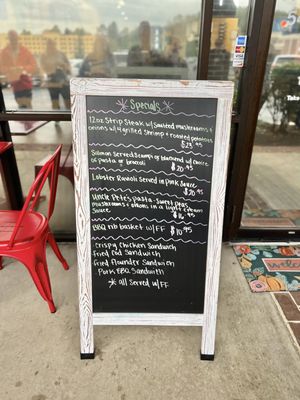 Specials
12oz Strip Steak w/ Sauteed mushrooms +
onions w/ 4 grilled shrimp + roasted potatoes
$23.95
Salmon Served Scampi or blackened w/ choice
of pasta or broccoli
$20.95
Lobster Ravioli served in pink sauce
$20.95
Uncle Pete's pasta - sweet peas,
mushrooms + onions in a light cream
sauce
$16.95
BBQ rib basket w/ FF
$10.95
Crispy Chicken Sandwich
Fried Cod Sandwich
Fried Flounder Sandwich
Pork BBQ Sandwich
* all Served w/ FF